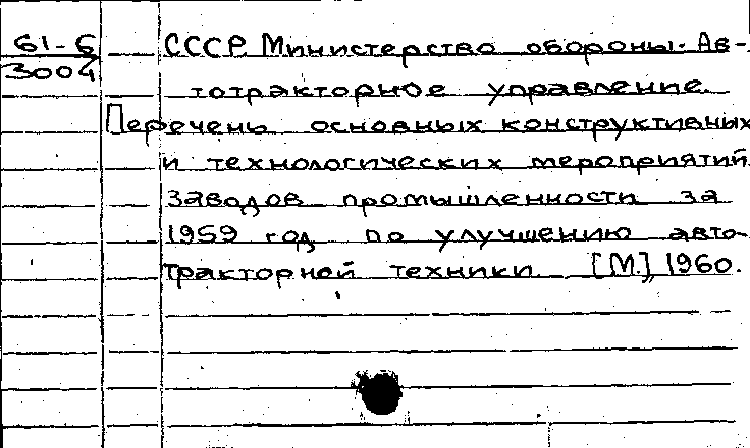 61-6 СССР. Министерство обороны. Ав-
3004 тотракторное управление.
Перечень основных конструктивных
и технологических мероприятий
заводов промышленности за
1959 год по улучшению авто-
тракторной техники. [М.], 1960.